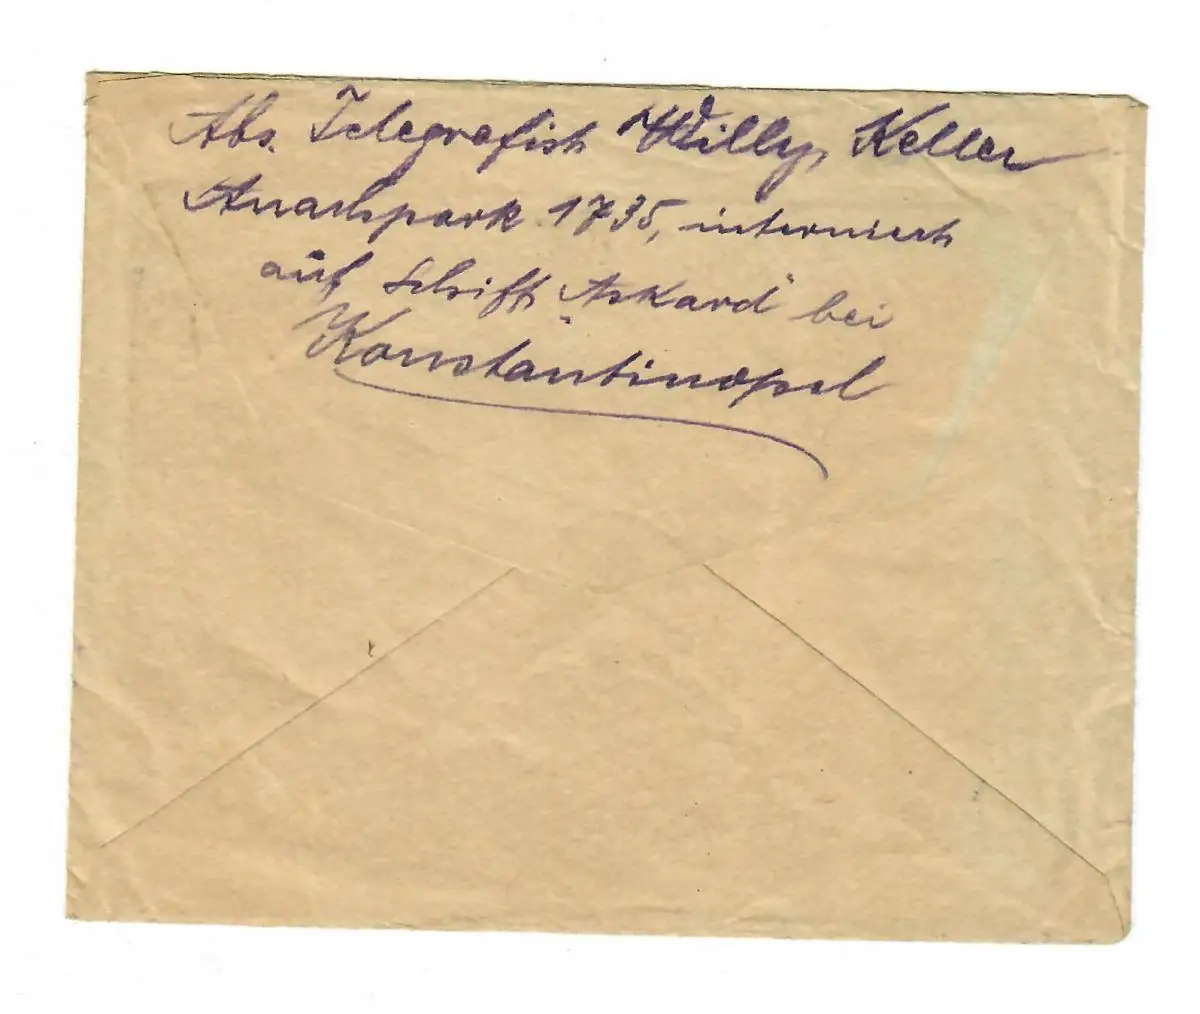 Abs. Telegrafist Willy Keller
1735, interniert
auf Schiff „Askard" bei
Konstantinopel